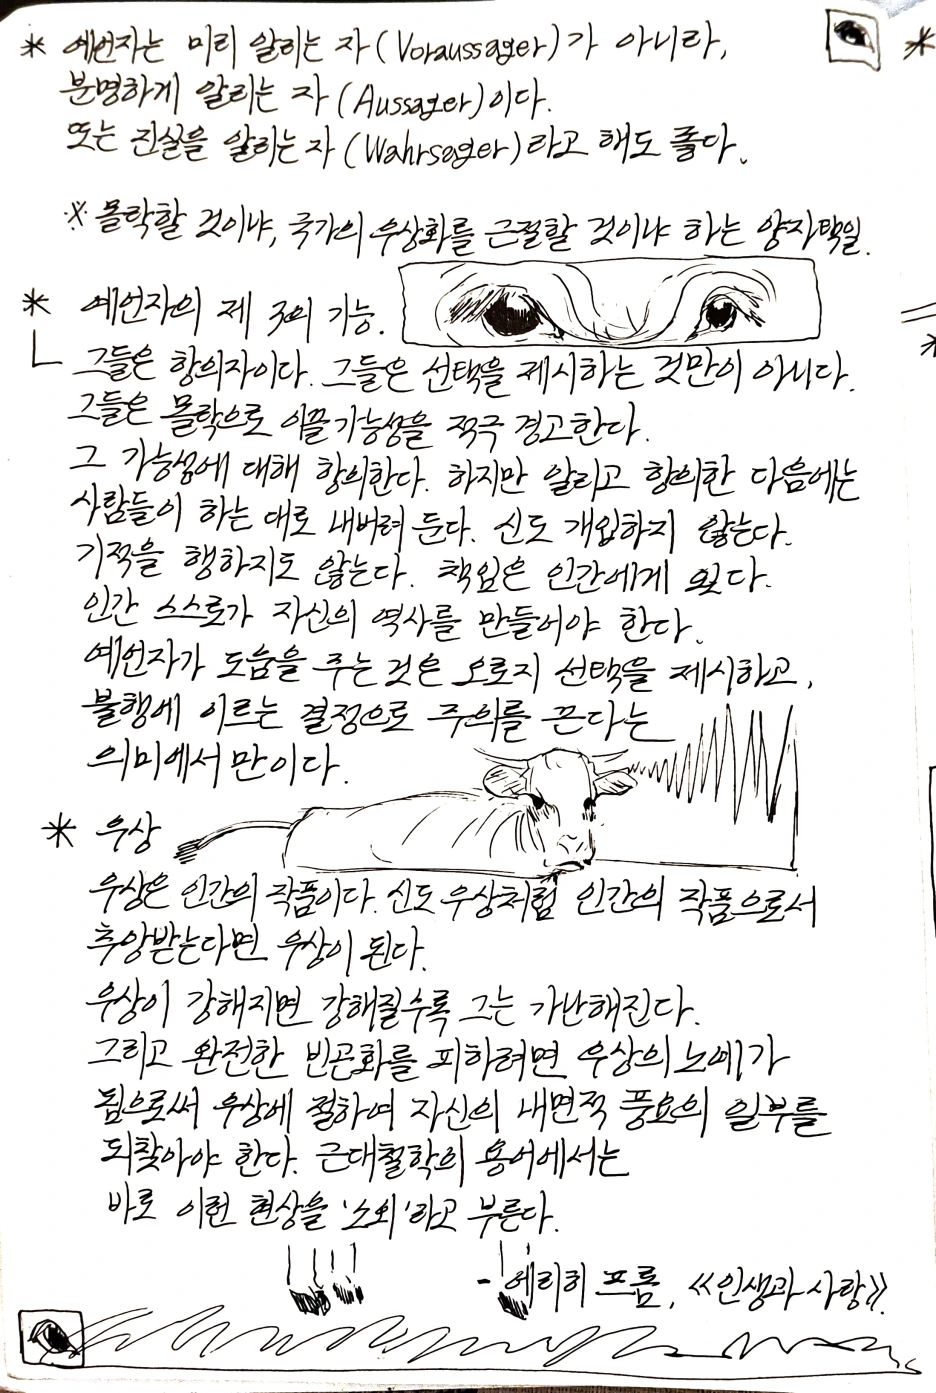 * 예언자는 미리 알리는 자(Voraussager)가 아니라,
분명하게 알리는 자(Aussager)이다.
또는 진실을 알리는 자(Wahrsager)라고 해도 좋다.
※ 몰락할 것이냐, 국가의 우상화를 근절할 것이냐 하는 양자택일.
* 예언자의 제 3의 기능.
그들은 항의자이다. 그들은 선택을 제시하는 것만이 아니다.
그들은 몰락으로 이끌 가능성을 적극 경고한다.
그 가능성에 대해 항의한다. 하지만 알리고 항의한 다음에는
사람들이 하는 대로 내버려 둔다. 신도 개입하지 않는다.
기적을 행하지도 않는다. 책임은 인간에게 있다.
인간 스스로가 자신의 역사를 만들어야 한다.
예언자가 도움을 주는 것은 오로지 선택을 제시하고,
불행에 이르는 결정으로 주의를 끈다는
의미에서 만이다.
* 우상
우상은 인간의 작품이다. 신도 우상처럼 인간의 작품으로서
추앙받는다면 우상이 된다.
우상이 강해지면 강해질수록 그는 가난해진다.
그리고 완전한 빈곤화를 피하려면 우상의 노예가
됨으로써 우상에 절하여 자신의 내면적 풍요의 일부를
되찾아야 한다. 근대철학의 용어에서는
바로 이런 현상을 '소외'라고 부른다.
- 에리히 프롬, 《인생과 사랑》.